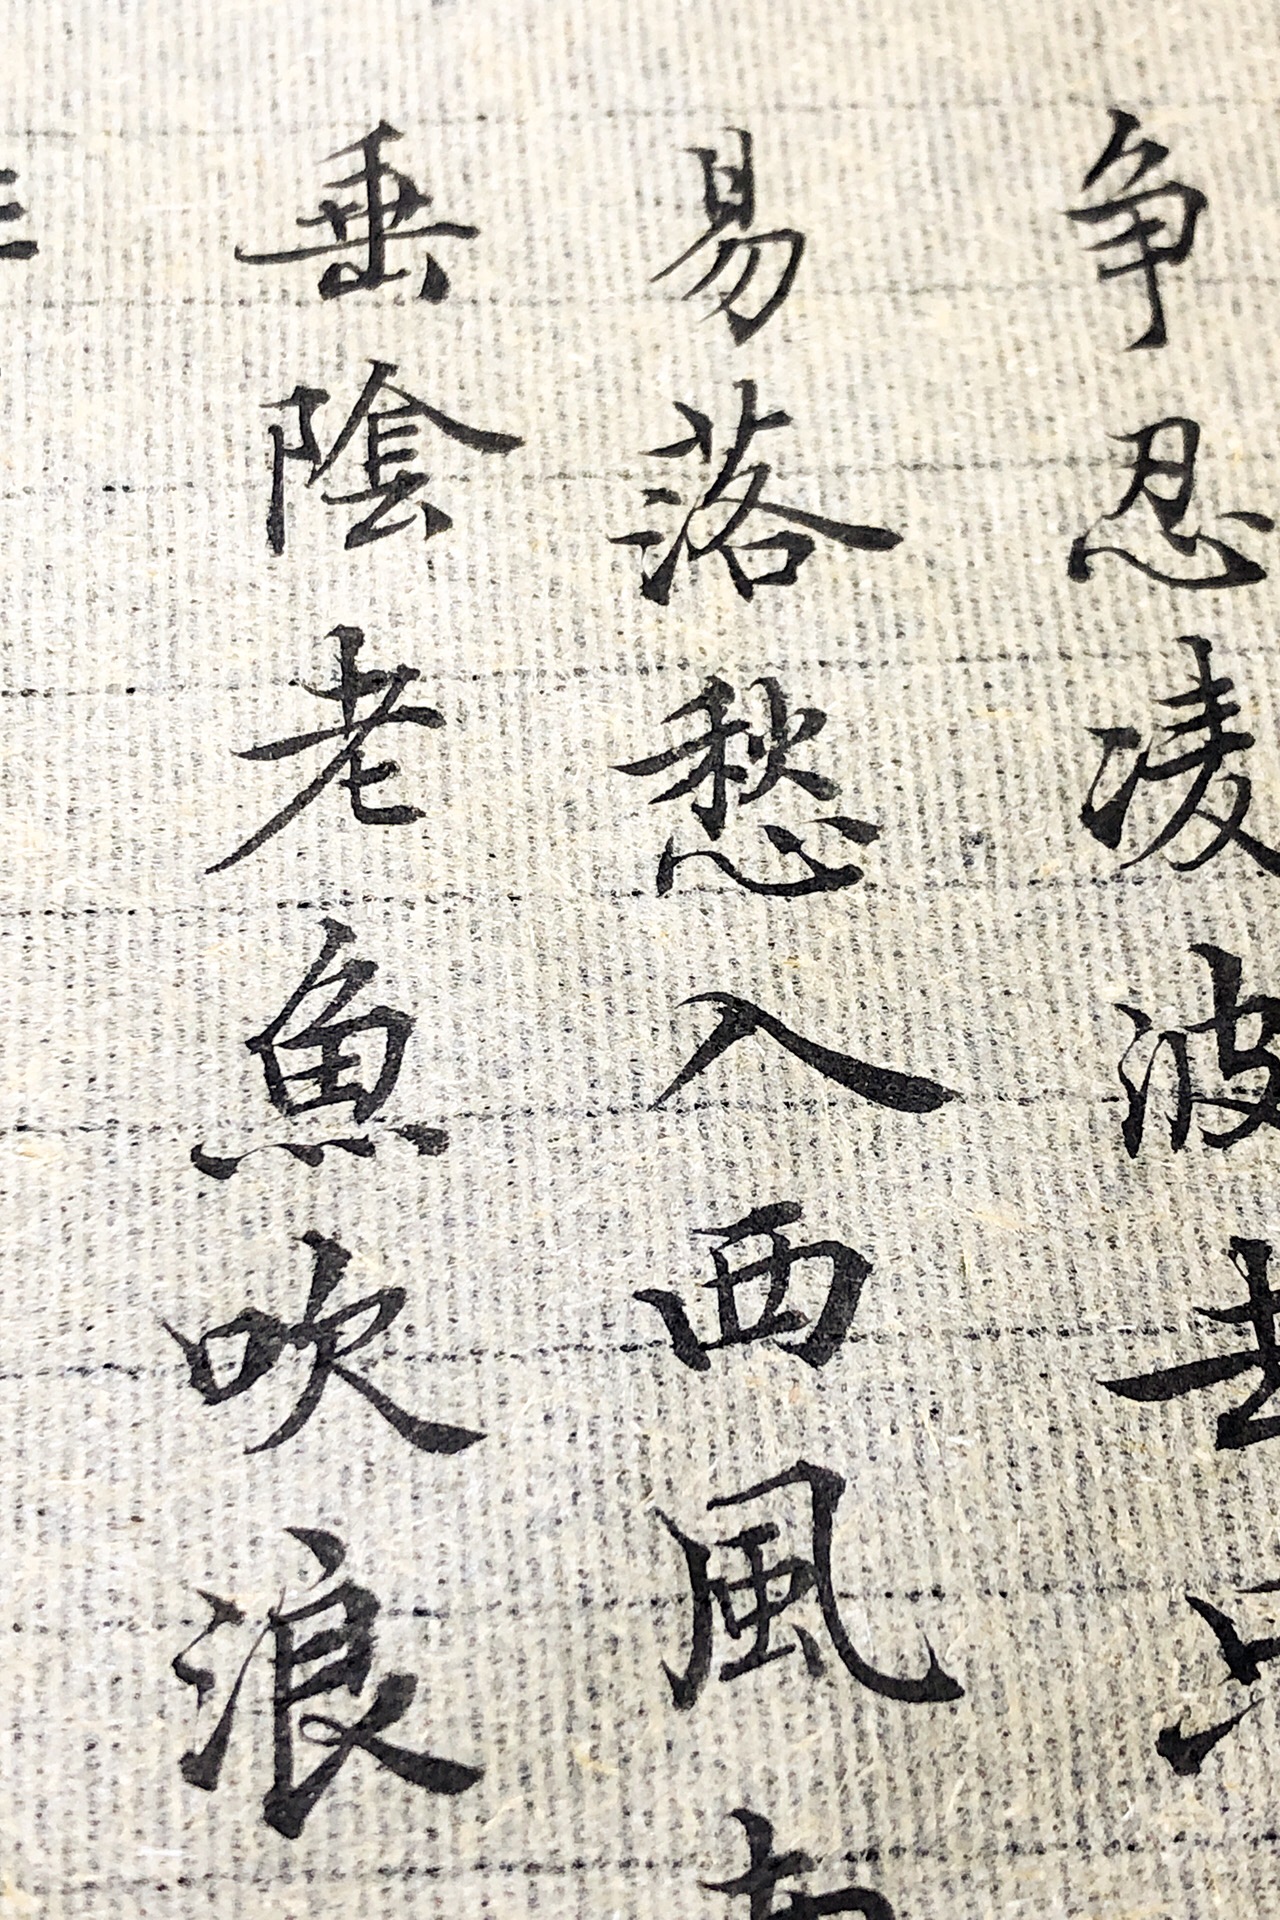 争忍凌波去只
易落愁入西風南
垂陰老魚吹浪